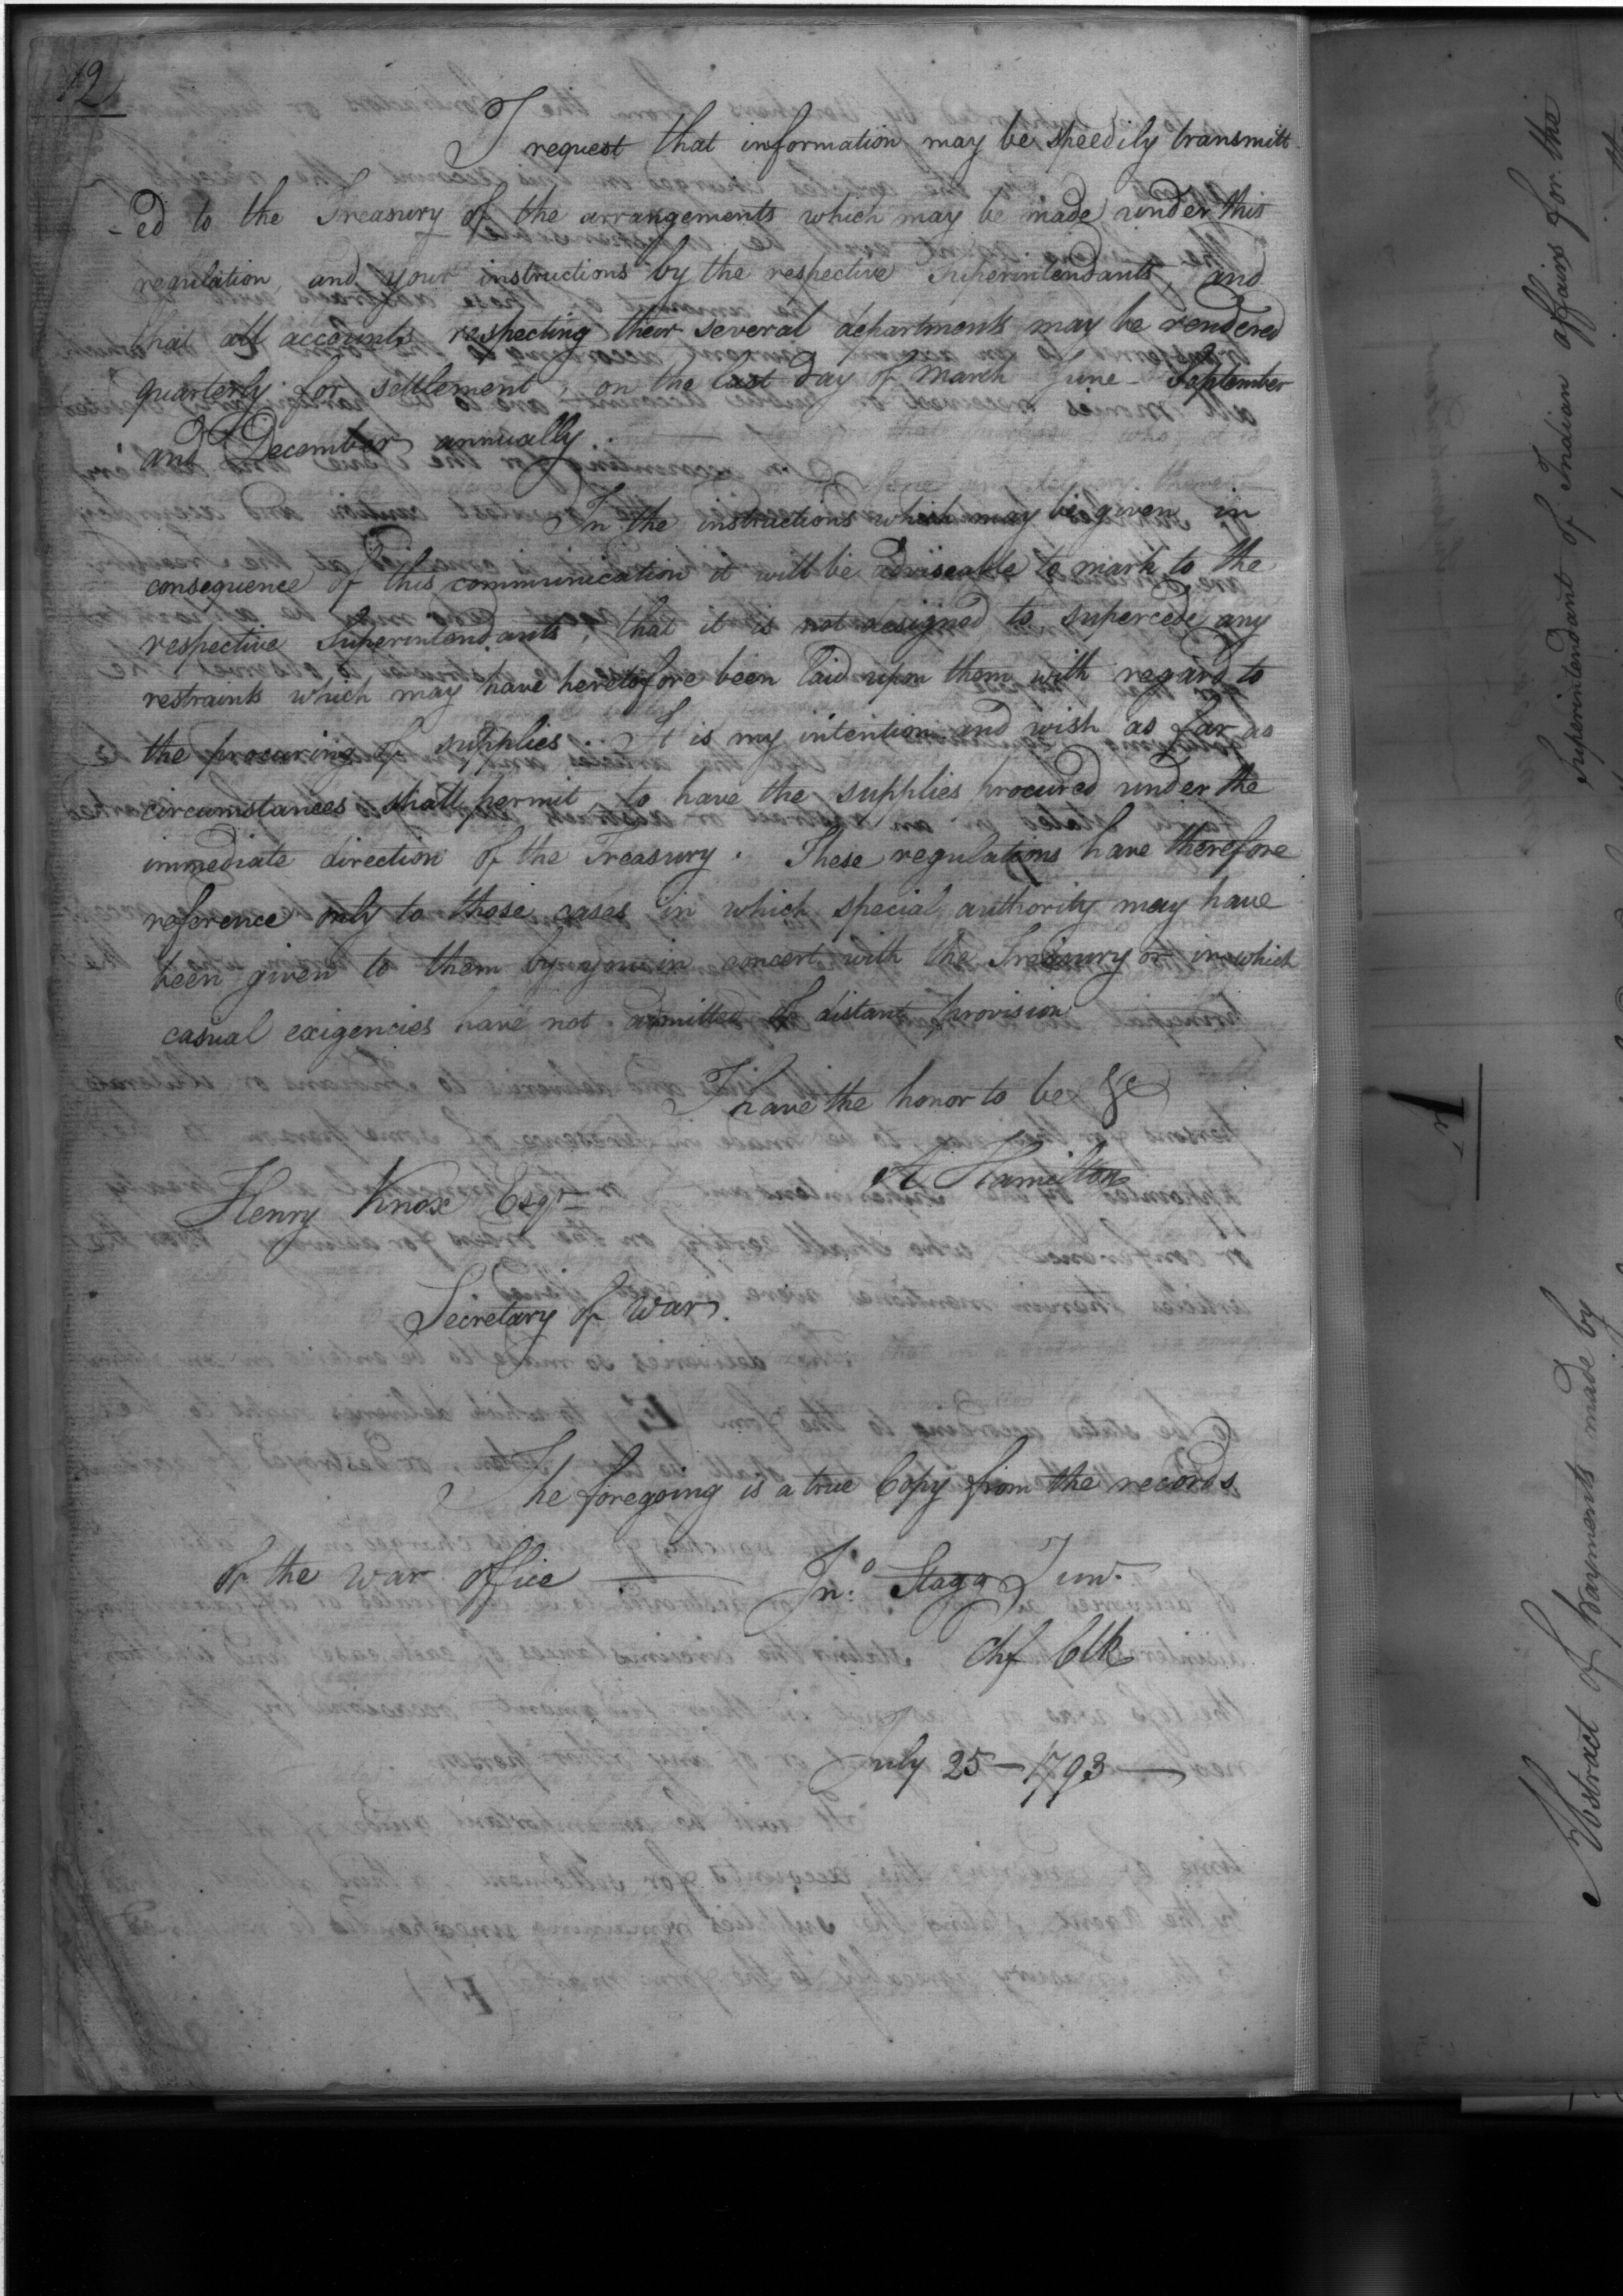 12
I request that information may be speedily transmitt
-ed to the Treasury of the arrangements which may be made under this
regulation, and your instructions by the respective Superintendants, and
that all accounts respecting their several departments may be rendered
quarterly for settlement, on the last day of March June - September
and December annually.
In the instructions which may be given in
consequence of this communication it will be adviseable to mark to the
respective Superintendants, that it is not designed to supercede any
restraints which may have heretofore been laid upon them with regard to
the procuring of supplies. It is my intention and wish as far as
circumstances shall permit, to have the supplies procured under the
immediate direction of the Treasury. These regulations have therefore
reference only to those cases in which special authority may have
been given to them by you in concert with the Treasury or in which
casual exigencies have not admitted of distant provision
I have the honor to be &c
A Hamilton
Henry Knox Esqr
Secretary of War.
The foregoing is a true Copy from the records
of the War office
Jno. Stagg Junr
Chf Clk
July 25 - 1793
Abstract of payments made by
Superintendant of Indian affairs for the